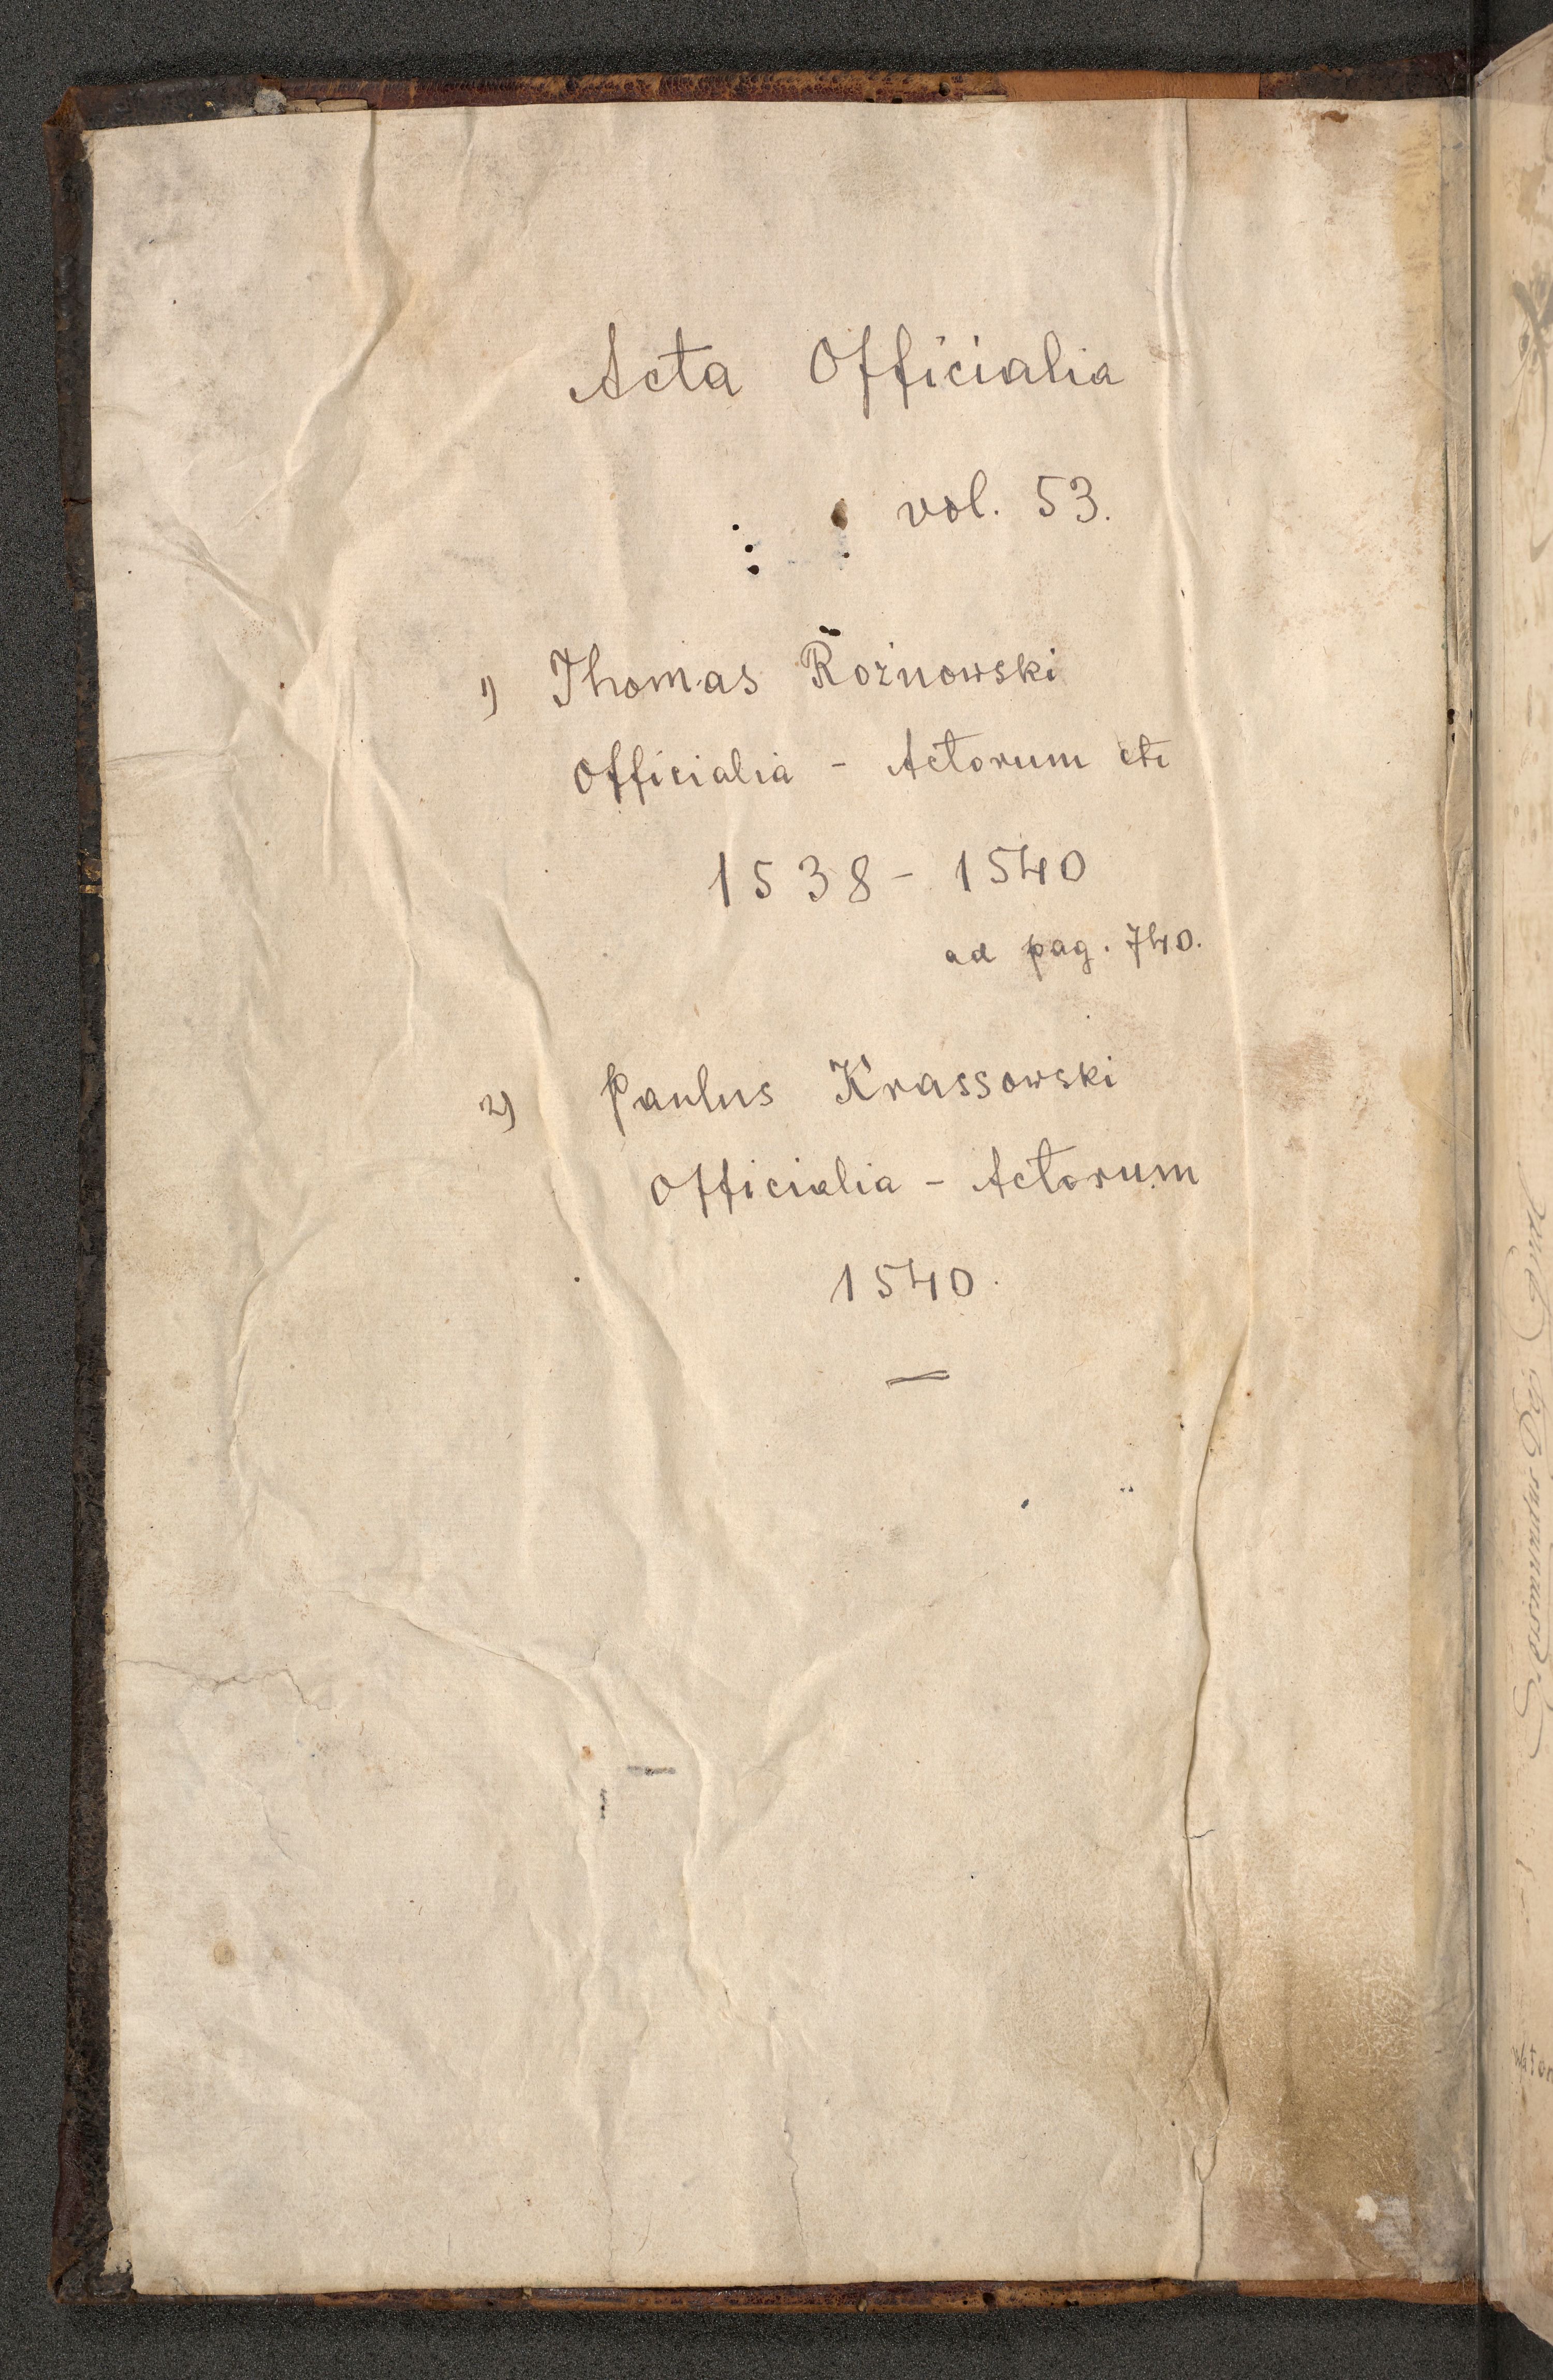 Acta Officialia
vol. 53.
1) Thomas Rożnowski
Officialia - Actorum etc
1538 - 1540
ad pag. 740.
2) Paulus Krassowski
Officialia - Actorum
1540.